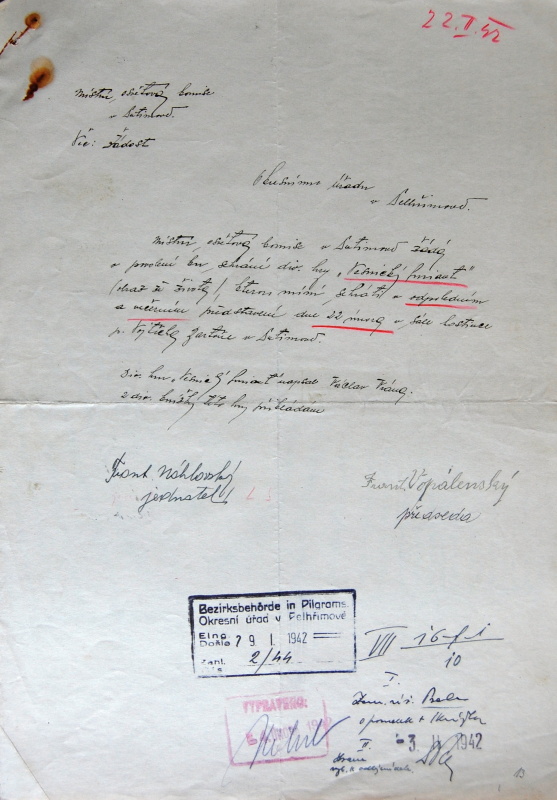 22.II.42
Místní osvětová komise
v Putimově.
Věc: žádost
Okresnímu úřadu
v Pelhřimově.
Místní osvětová komise v Putimově žádá
o povolení ku sehrání div. hry „Vesnický
/obraz ze života/, kterou míní sehráti v odpoledním
a večerním představení dne 22 února v sále hostince
p. Vojtěcha v Putimově.
Div. hru „Vesnický napsal Václav
2 div. knížky této hry přikládám
Frant. Náhlovský
jednatel
Frant. Vopálenský
předseda
Bezirksbehörde in Pilgrams.
Okresní úřad v Pelhřimově
Eing.
Došlo 29 I. 1942
Zahl.
2/44
VII
10
I.
VYPRAVENO:
II. -3 II 1942